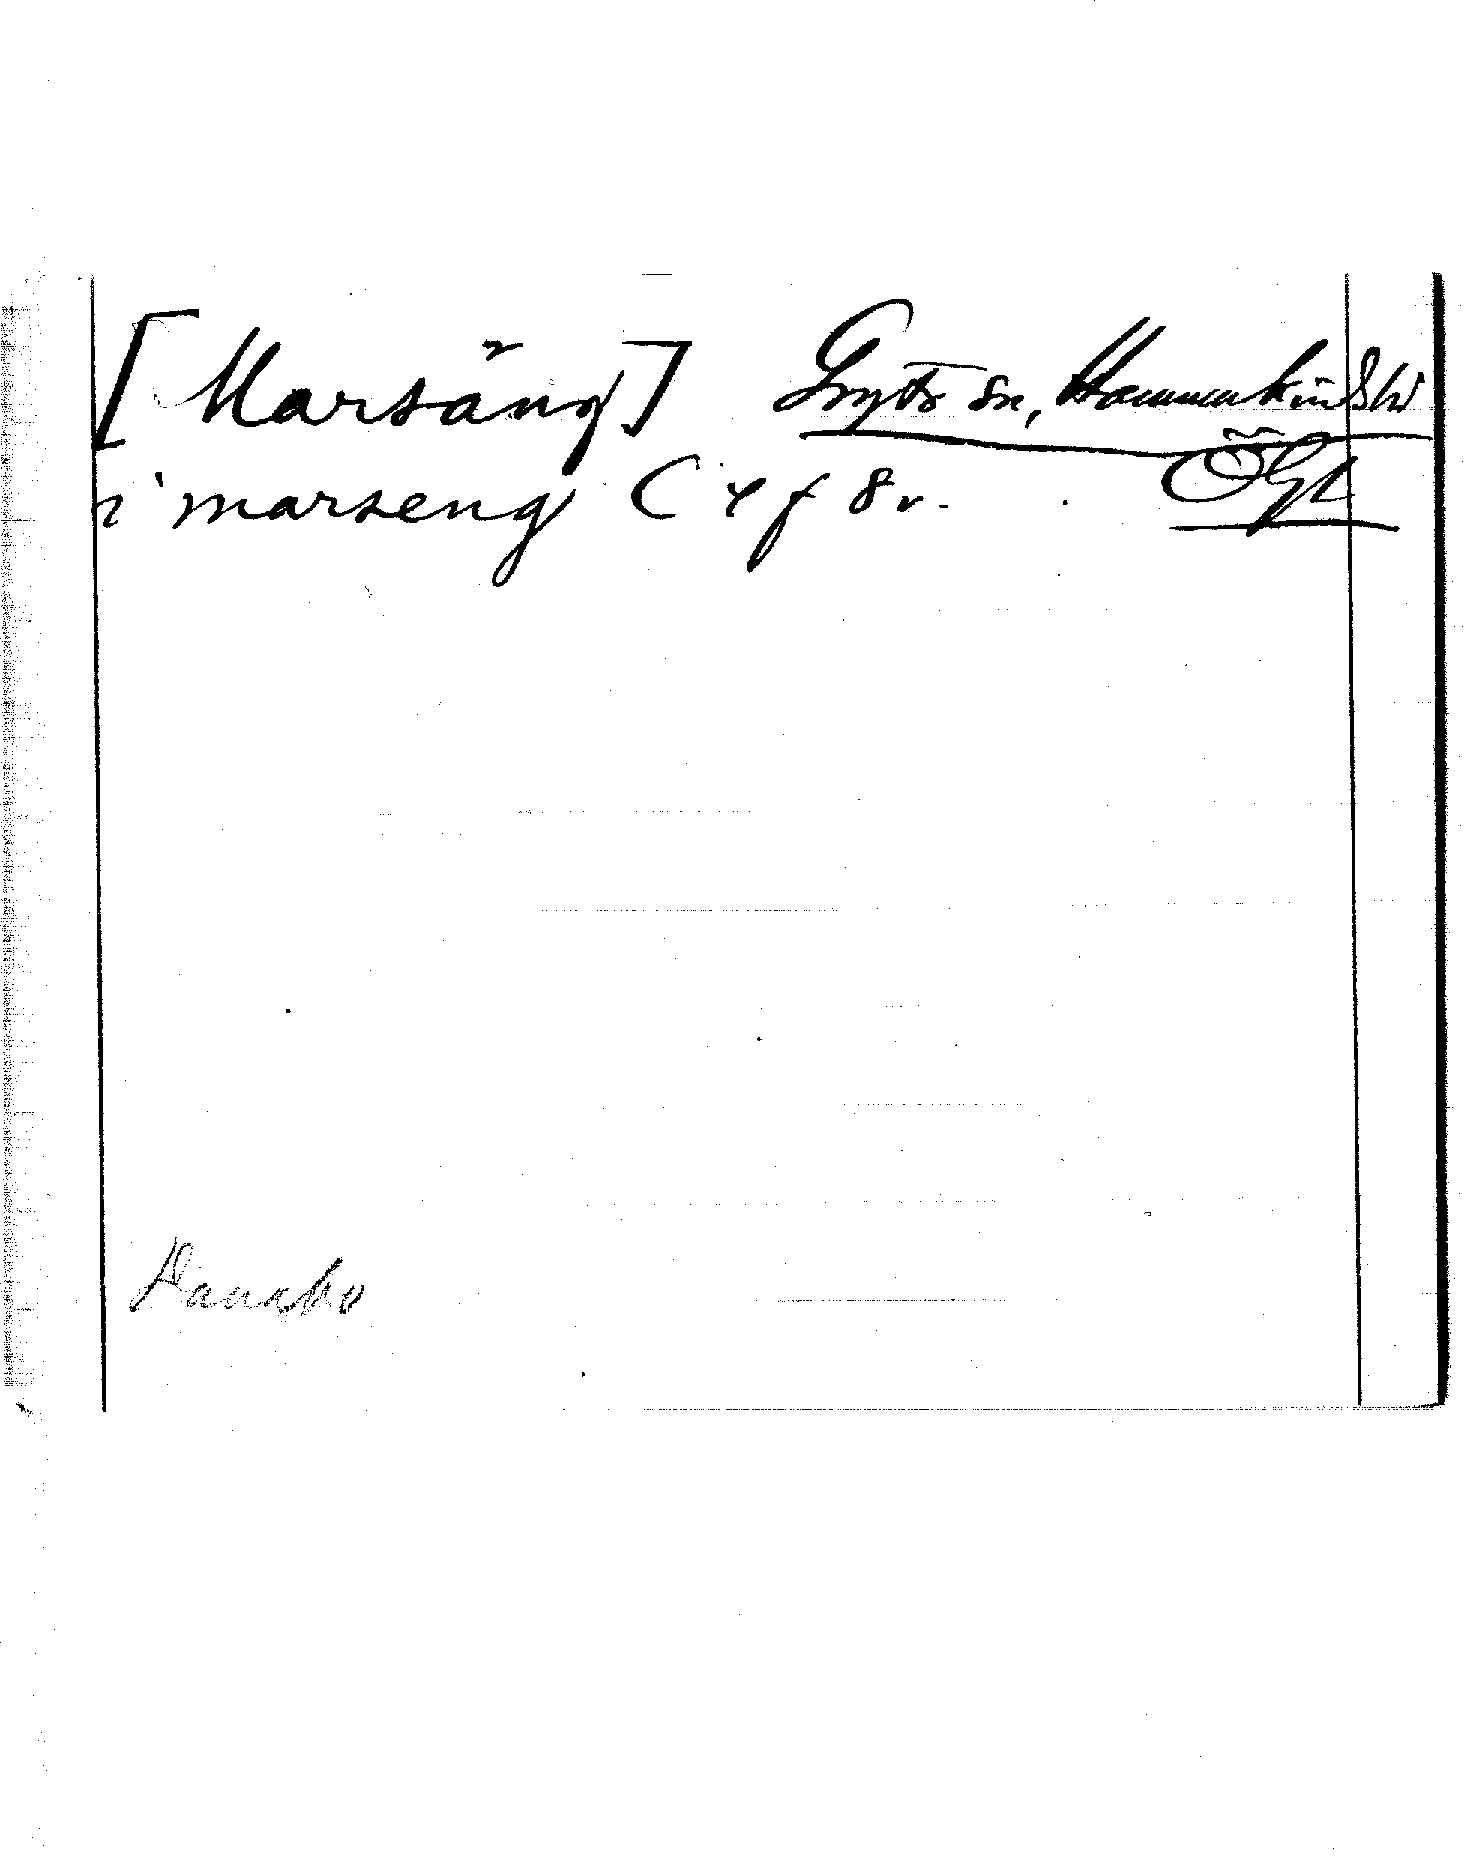 [Marsäng] Gryts sn, Hammarkinds hd
i marseng C 4 f 8 v. ÖGL